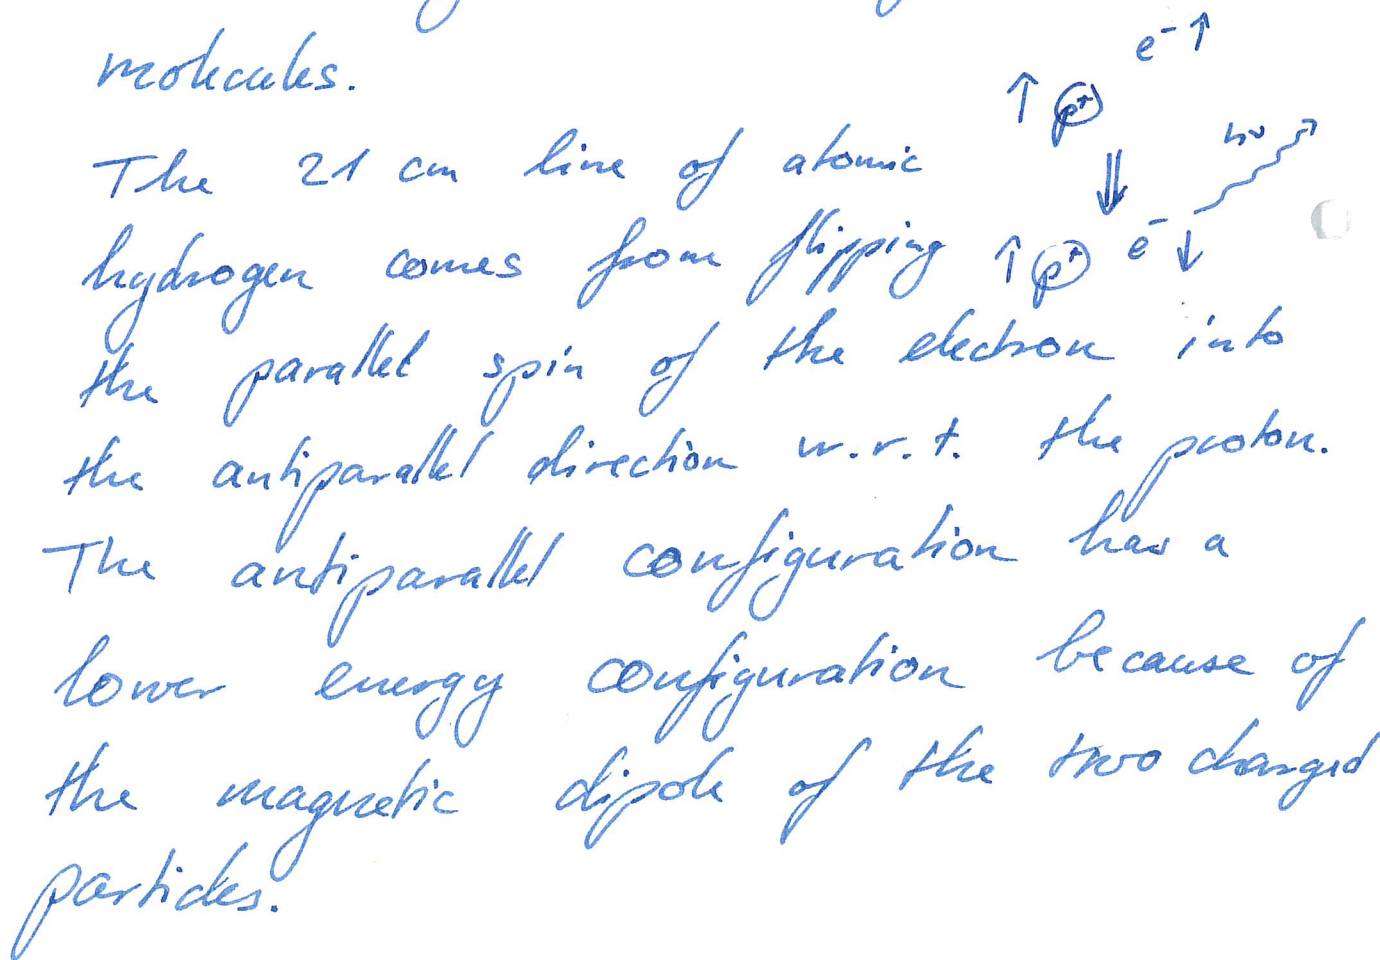 molecules.
e⁻ ↑
↑ p⁺
The 21 cm line of atomic
hν
hydrogen comes from flipping
↑ p⁺ e⁻ ↓
the parallel spin of the electron into
the antiparallel direction w.r.t. the proton.
The antiparallel configuration has a
lower energy configuration because of
the magnetic dipole of the two charged
particles.